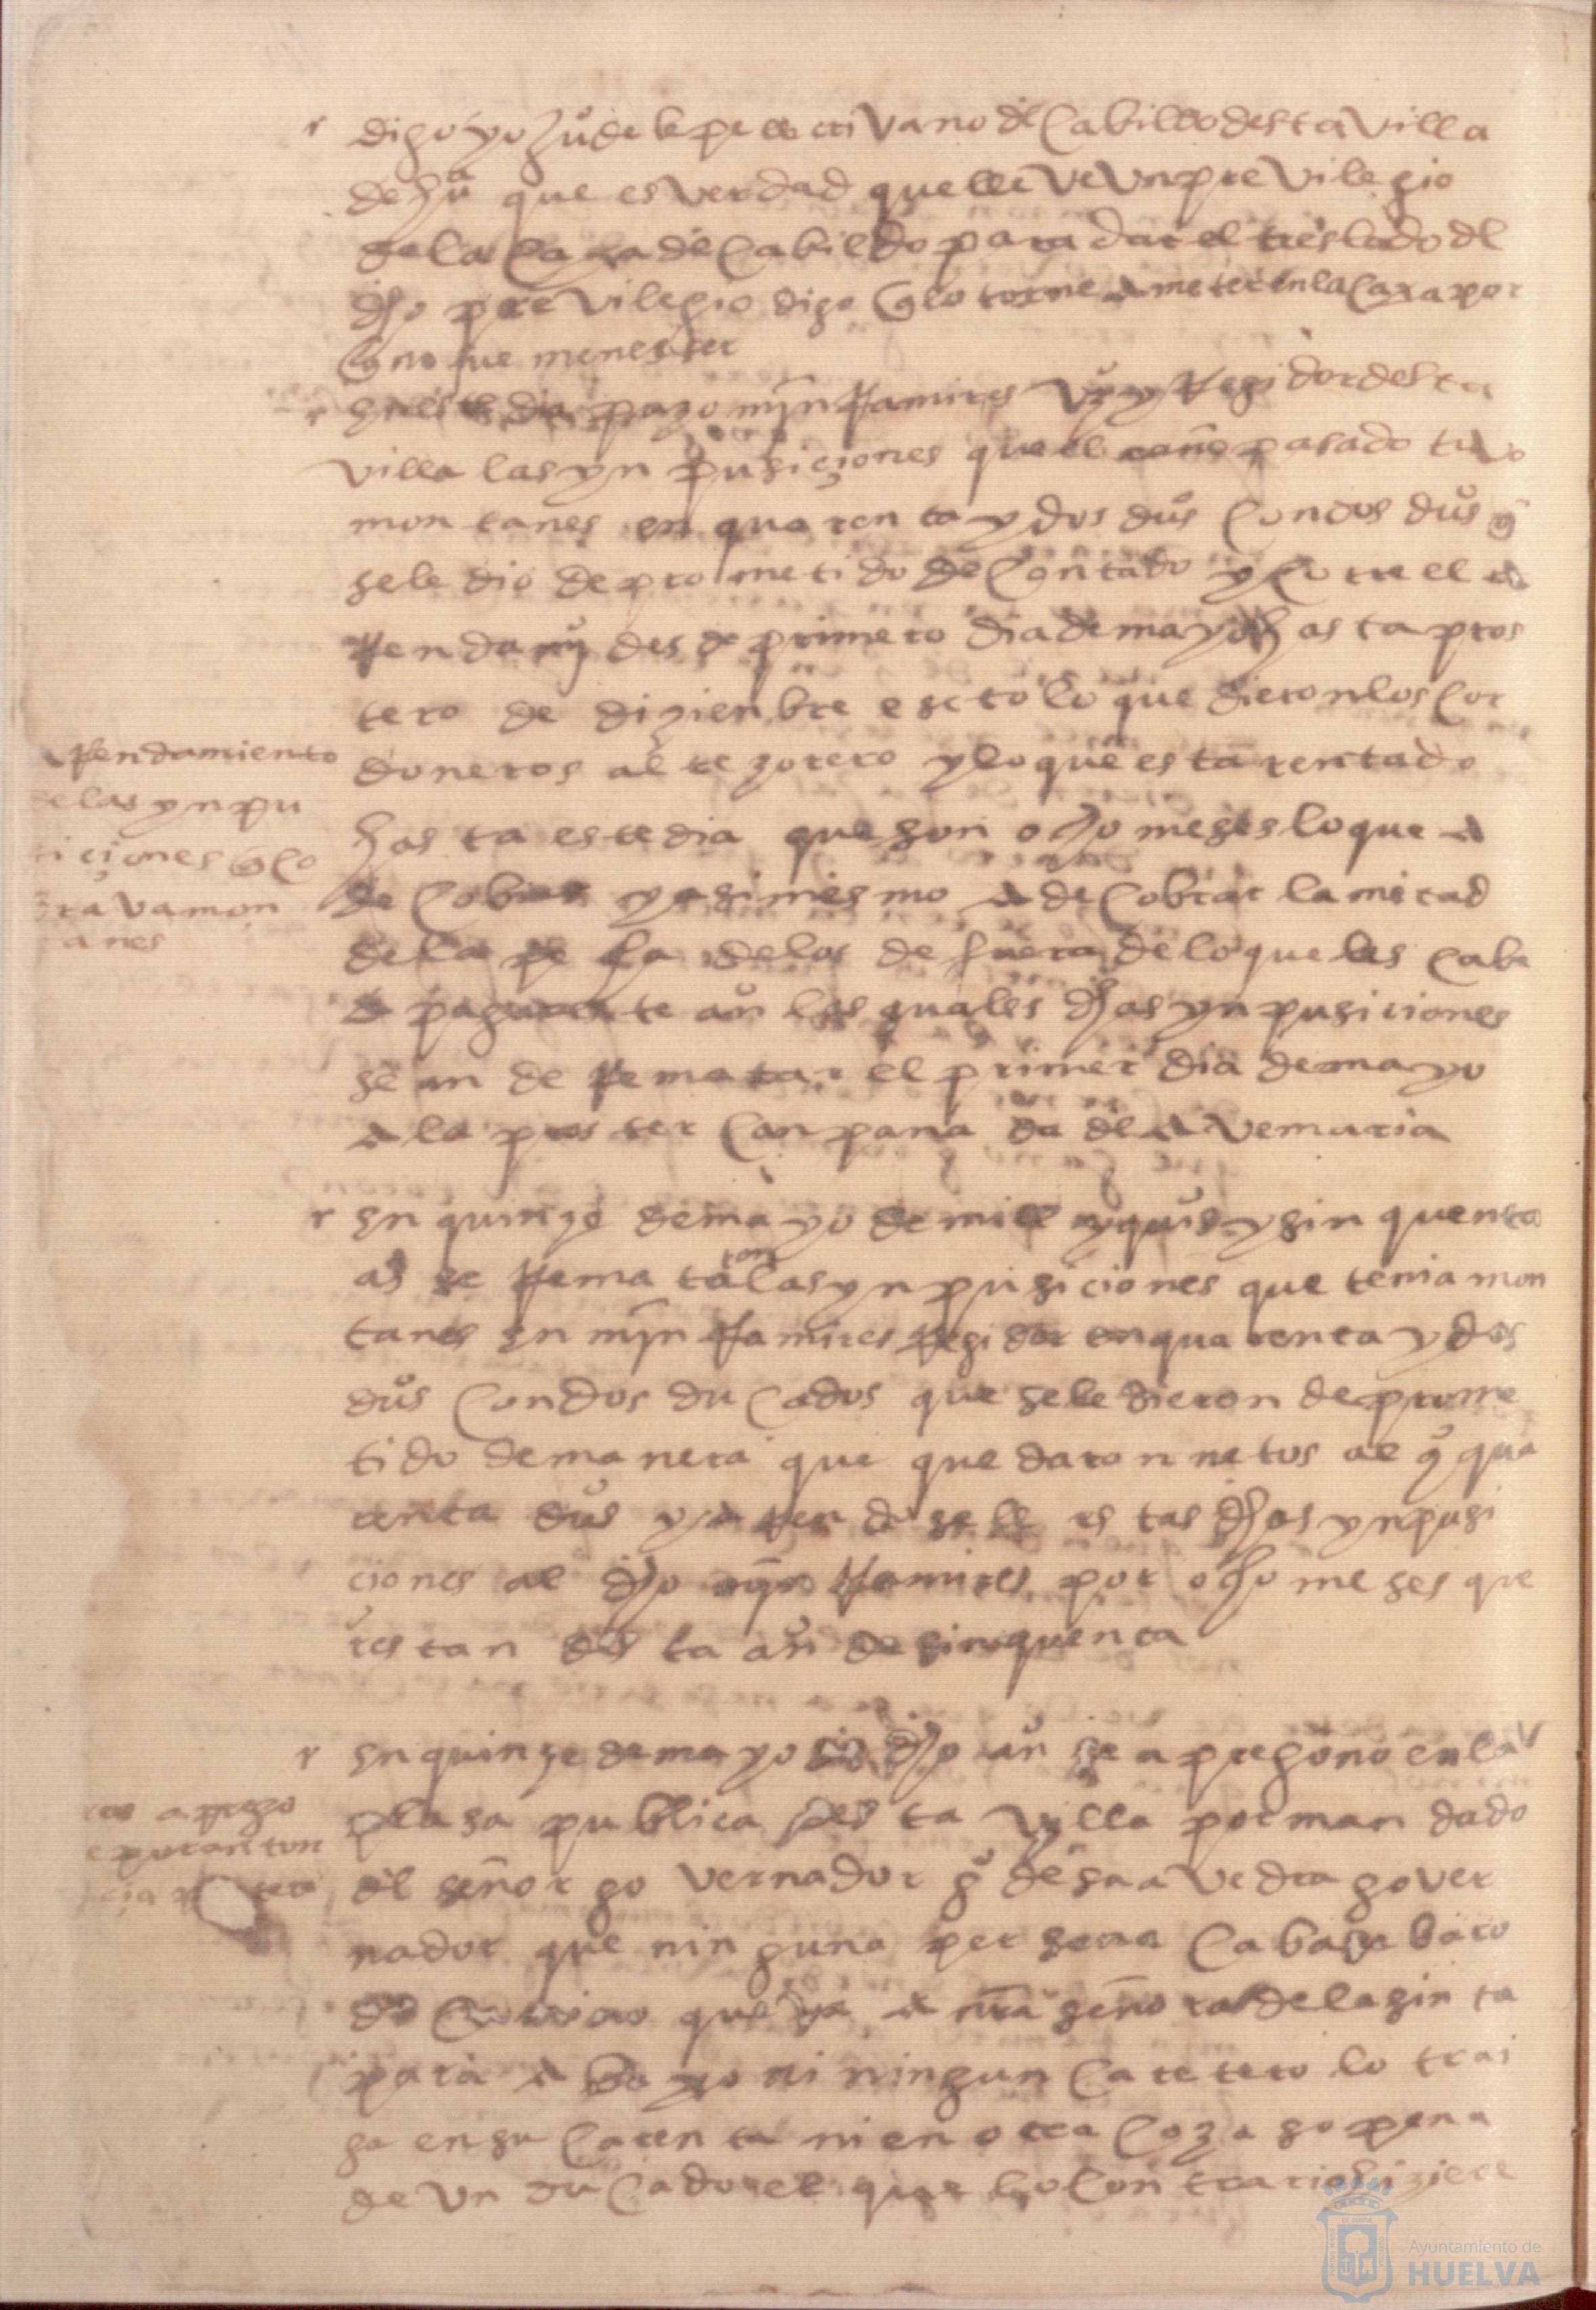 digo yo Ju° de lepe escrivano del Cabilldo desta villa
de hua que es verdad que lleve un previlegio
de la Caxa de Cabildo para dar el treslado dl
dho previlegio digo q lo torne a meter en la Caxa por
q no fue menester
En este dia puzo myn Ramires vz° y Regidor desta
villa las ynpusiçiones quel año pasado tuvo
montanes en quarenta y dos dus Con dos dus q
se le dio de prometido de Contado y Corre el a
Rendamy° desde primero dia de mayo hasta pros
tero de dizienbre eseto lo que dieron los Cor
doneros al tezorero y lo que esta rentado
hasta este dia que son ocho meses lo que a
de Cobrar y asimesmo a de Cobrar la mitad
de la de los de fuera de lo que les Cabe
a pagar este añ las quales dhas ynpusiciones
se an de Rematar el primer dia de mayo
a la proster Canpana da del avemaria
aRendamiento
de las ynpu
siciones q Co
brava mon
tanes
En quinze de mayo de mill y qui°s y sinquenta
as se Remataron las ynpusiciones que tenia mon
tanes En myn Ramires Regidor en quarenta y dos
dus Con dos duCados que se le dieron de prome
tido de manera que quedaron netos al qua
renta dus y a Rendosele estas dhas ynpusi
ciones al dho myn Ramires por ocho meses que
restan desta añ de sinquenta
En quinze de mayo del dho añ se apregono en la
plasa publica desta villa por mandado
del señor governador g° de saavedra gover
nador que ninguna persona
que a nra señora de la sinta
para ni ningun Carretero lo trai
ga en su Carreta ni en otra Coza so pena
de un duCado el que lo Contrario hiziere
aprego
Ayuntamiento de
HUELVA